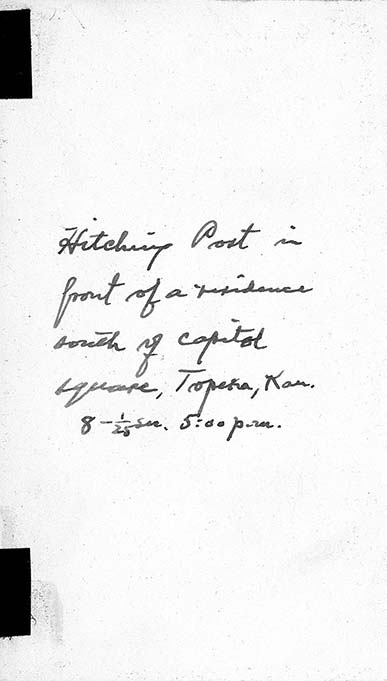 Hitching Post in
front of a residence
south of capitol
square, Topeka, Kan.
8 - 1/25 sec. 5:00 p.m.